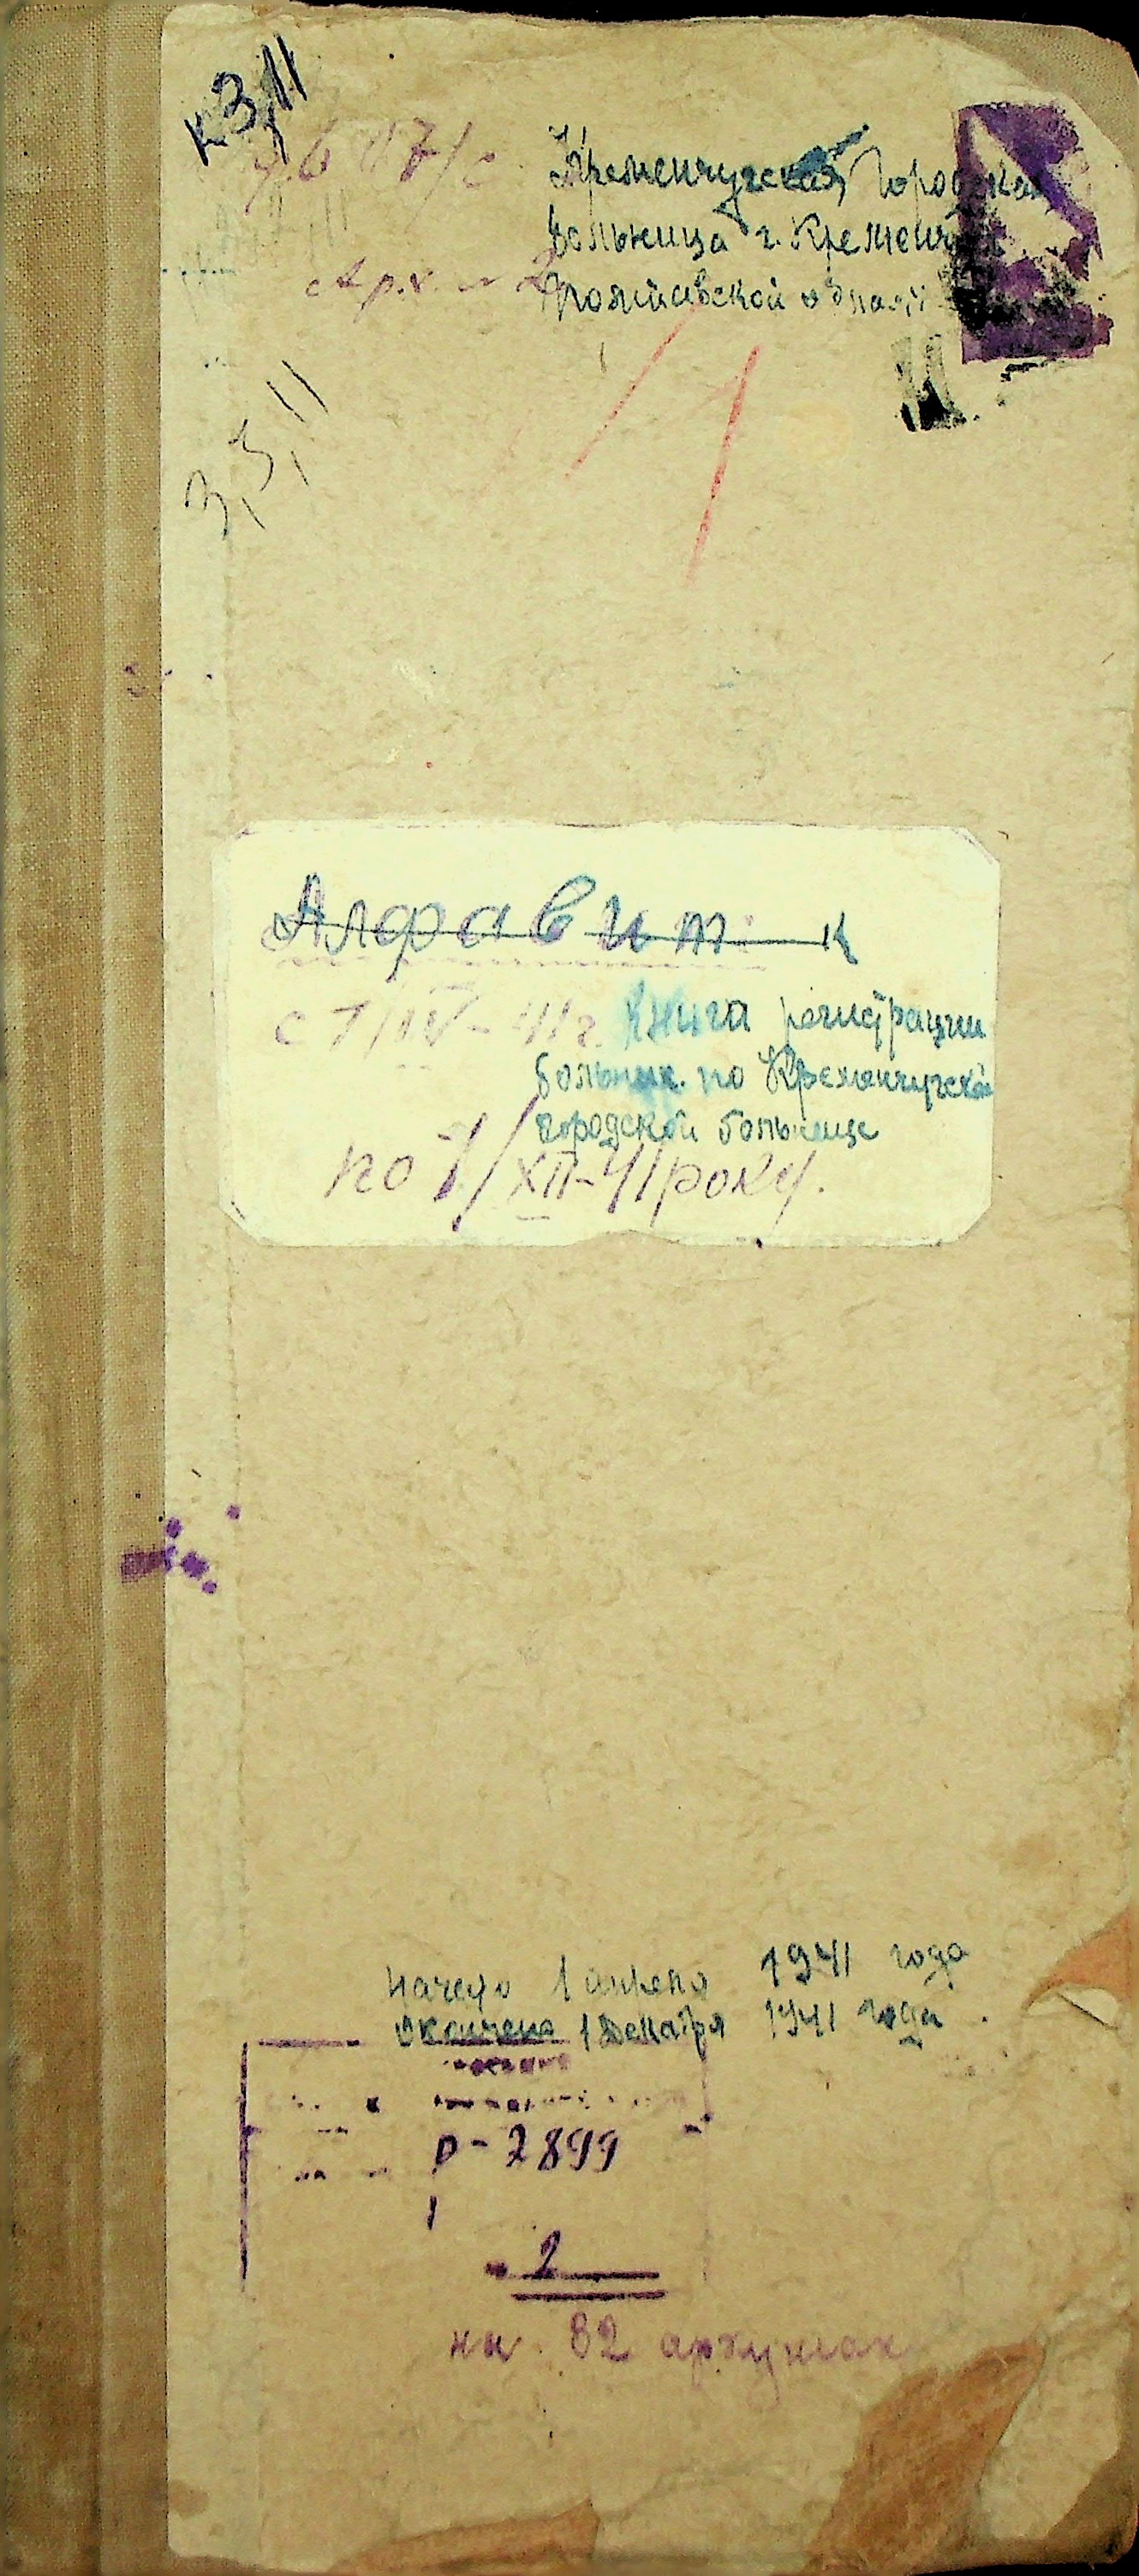 к 3,11
Кременчугская Городская
больница г. Кременчуг
Полтавской област
Арх. № 2
3,3,11
Алфавит к
с 1/IV - 41 г. Книга регистрации
больник. по Кременчугской
городской больнице
по 1/XII-41 року.
Начато 1 апреля 1941 года
Окончена 1 Декабря 1941 года.
Р-2899
1
2
на 82 аркушах